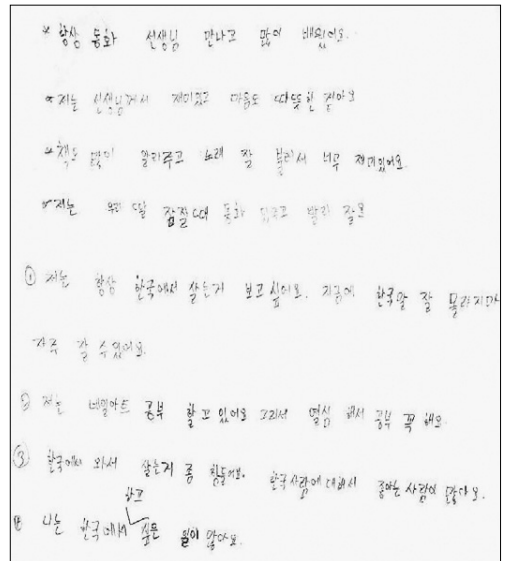 * 항상 동화 선생님 만나고 많이 배웠어요.
* 저는 선생님께서 재미있고 마음도 따뜻한 같아요
* 책도 많이 알려주고 노래 잘 불러서 너무 재미있어요.
* 저는 우리 딸 잠잘때 동화 읽구고 빨리 잘요
① 저는 항상 한국에서 살는거 보고 싶어요. 지금에 한국말 잘 몰라지만
자주 잘 수 있어요.
② 저는 네일아트 공부 할고 있어요 그리서 열심 해서 공부 꼭 해요.
③ 한국에서 와서 살는거 좀 힘들어요. 한국사람에 대해서 좋아는 사람이 많아요.
하고
나는 한국에서 싶은 일이 많아요.